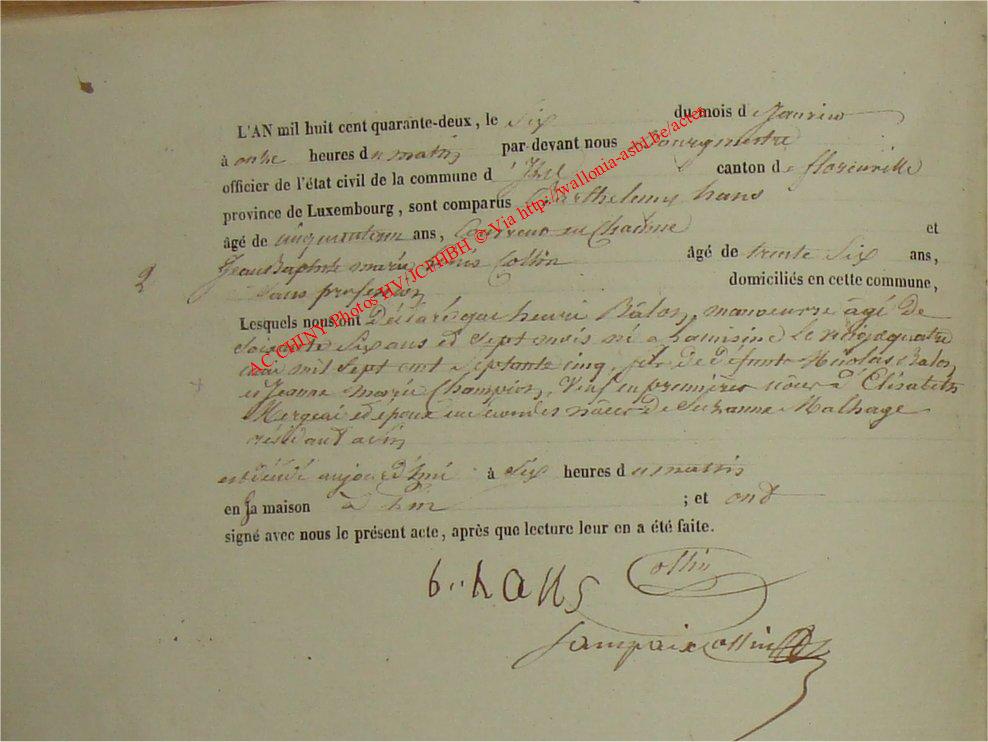 L'AN mil huit cent quarante-deux, le Six du mois d e Janvier
à onze heures d u matin par-devant nous Bourgmestre
officier de l'état civil de la commune d' Izel canton d e florenville
province de Luxembourg, sont comparus Barthelemy hans
âgé de ans, et
Jean Baptiste marie Collin âgé de trente Six ans,
2 Sans profession domiciliés en cette commune,
Lesquels nous ont Déclaré que henri Balon, manoeuvre âgé De
Soixante Six ans et Sept mois né a Lacuisine Le vingt quatre
mai mil Sept cent Septante cinq, fils De Defunts Nicolas Balon
et Jeanne marie Champion, Veuf en premières nôces d'Elisabeth
et epoux en secondes nôces De Suzanne Malhage
résidant a
est décédé aujourd'hui à Six heures d u matin
en Sa maison à ; et ont
signé avec nous le présent acte, après que lecture leur en a été faite.
b.. hans Collin
Sampaix Collin
AC CHINY Photos HV/JCP/HBH © Via http://wallonia-asbl.be/actes